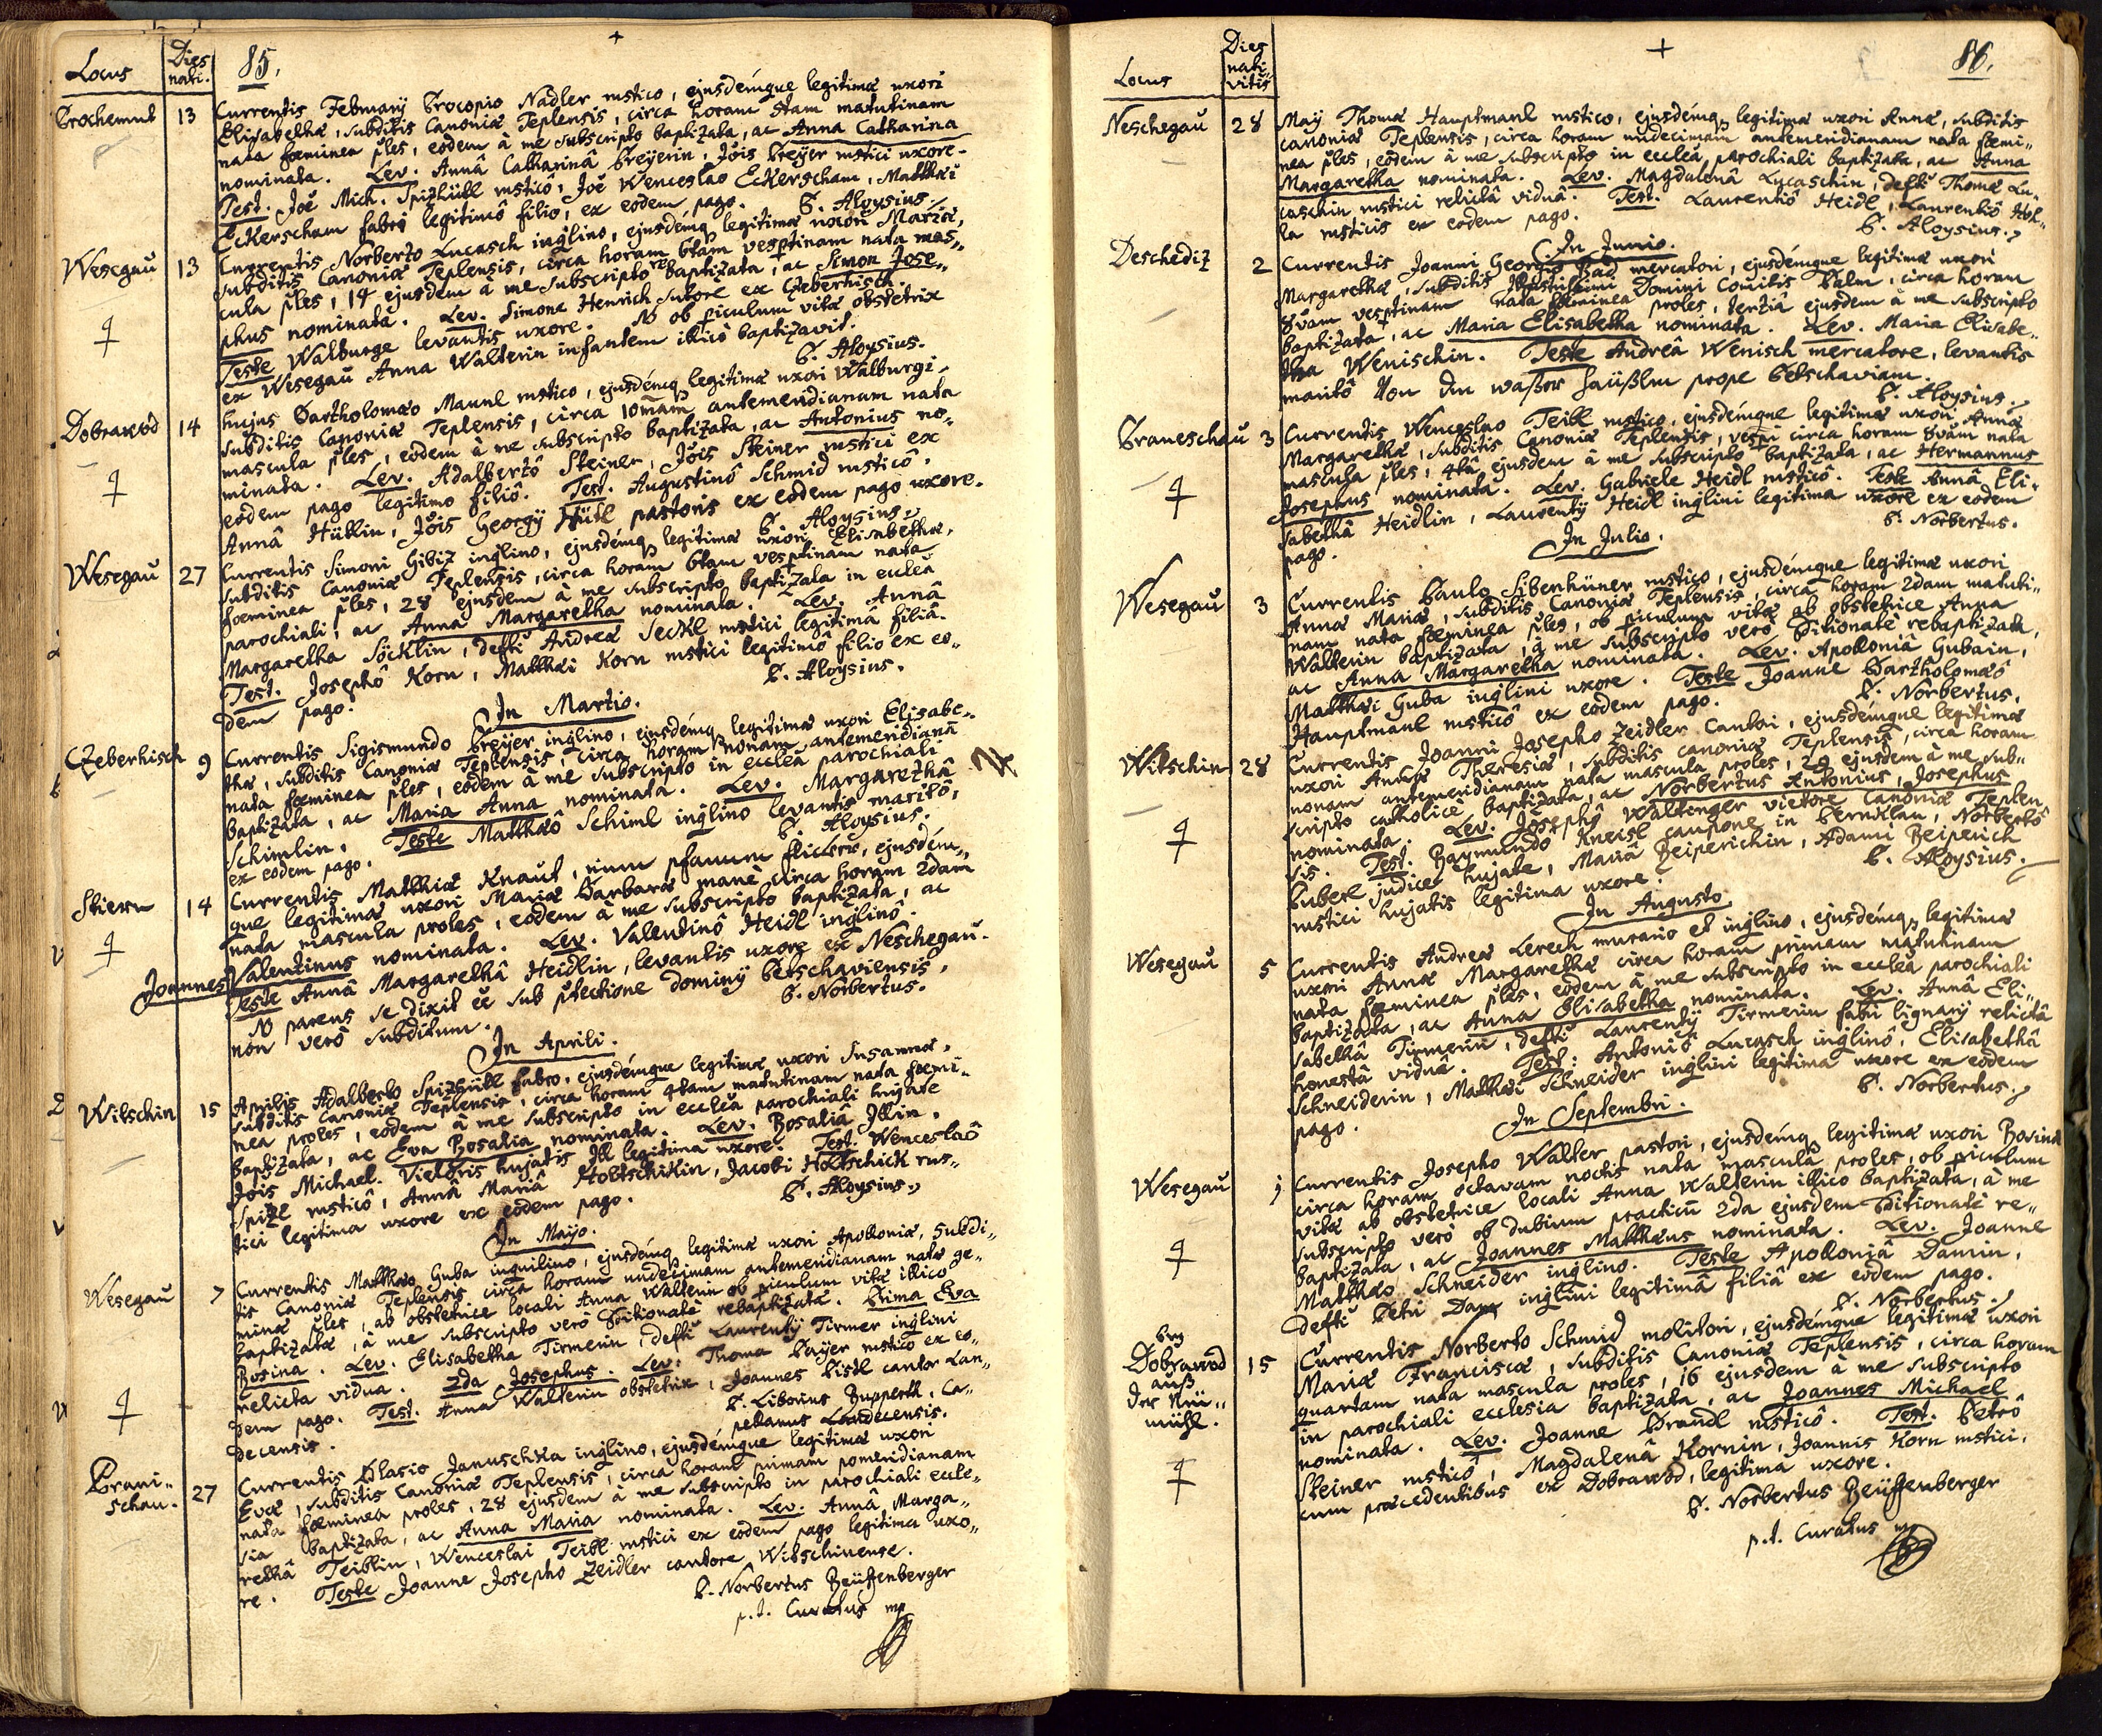 Locus
Dies
nati.
85.
Prochomut 13 Currentis Februarij Procopio Nadler rustico, ejusdémque legitimæ uxori
Elisabethæ, subditis Canoniæ Teplensis, circa horam 8tam matutinam
nata fœminea ples, eôdem à me subscripto baptizata, ac Anna Catharina
nominata. Lev. Annâ Catharinâ Preÿerin, Jôis Preÿer rustici uxore.
Test. Joê Mich. Spizhütl rusticô, Joê Wenceslao Eckerscham, Matthæi
Eckerscham fabri legitimô filio, ex eodem pago. P. Aloysius.
Wesegau 13 Currentis Norberto Lucasch inglino, ejusdémq legitimæ uxori Mariæ,
subditis Canoniæ Teplensis, circa horam 6tam vesptinam nata mas„
cula ples, 14 ejusdem à me subscripto rebaptizata, ac Simon Jose„
phus nominata. Lev. Simone Henrich sutore ex Czeberhisch.
Teste Walburge levantis uxore. NB ob piculum vitæ obstetrix
ex Wesegau Anna Walterin infantem illicò baptizavit.
P. Aloysius.
Dobrawod 14 hujus Bartholomæo Maunl rustico, ejusdémq legitimæ uxori Walburgi„
subditis Canoniæ Teplensis, circa 10mam antemeridianam nata
mascula ples, eôdem à me subscripto baptizata, ac Antonius no„
minata. Lev. Adalbertô Steiner, Jôis Steiner rustici ex
eodem pago legitimo filiô. Test. Augustinô Schmid rusticô,
Annâ Hüblin, Jôis Georgÿ Hütl pastoris ex eodem pago uxore.
P. Aloysius.
Wesegau 27 Currentis Simoni Gibiz inglino, ejusdémq legitimæ uxori Elisabethæ,
subditis Canoniæ Teplensis, circa horam 6tam vesptinam nata
fœminea ples, 28 ejusdem à me subscripto baptizata in eccleâ
parochiali, ac Anna Margaretha nominata. Lev. Annâ
Margaretha Söcklin, defti Andreæ Seckl rustici legitimâ filiâ.
Test. Josephô Korn, Matthæi Korn rustici legitimô filiô ex eo„
dem pago. P. Aloysius.
In Martio.
Czeberhisch 9 Currentis Sigismundo Preÿer inglino, ejusdémq legitimæ uxori Elisabe„
thæ, subditis Canoniæ Teplensis, circa horam nonam antemeridianâ
nata fœminea ples, eôdem à me subscripto in eccleâ parochiali
baptizata, ac Maria Anna nominata. Lev. Margarethâ
Schimlin. Teste Matthæô Schiml inglino levantis maritô,
ex eodem pago. P. Aloysius.
Stiern 14 Currentis Matthiæ Knaut, ejusdém„
que legitimæ uxori Mariæ Barbaræ manè circa horam 2dam
nata mascula proles, eôdem à me subscripto baptizata, ac
Joannes Valentinus nominata. Lev. Valentinô Heidl inglinô.
Teste Annâ Margarethâ Heidlin, levantis uxore ex Neschegau.
NB parens se dixit ee sub ptectione dominÿ Petschaviensis,
non verò subditum. P. Norbertus.
In Aprili.
Witschin 15 Aprilis Adalberto Spizhütl fabro, ejusdémque legitimæ uxori Susannæ,
subditis Canoniæ Teplensis, circa horam 4tam matutinam nata fœmi„
nea proles, eôdem à me subscripto in eccleâ parochiali hujate
baptizata, ac Eva Rosalia nominata. Lev. Rosaliâ Illin,
Jôis Michael. Vietoris hujatis Ill legitima uxore. Test. Wenceslaô
Spizl rusticô, Annâ Mariâ Hobtschikin, Jacobi Hobtschick rus„
tici legitima uxore ex eôdem pago. P. Aloysius.
In Mayo.
Wesegau 7 Currentis Matthæo Guba inquilino, ejusdémq legitimæ uxori Apolloniæ, subdi„
tis Canoniæ Teplensis circa horam undecimam antemeridianam natæ ge„
minæ ples, ab obstetrice locali Anna Walterin ob piculum vitæ illicò
baptizatæ, à me subscripto verò Ditionatè rebaptizatæ. Prima Eva
Rosina. Lev. Elisabetha Tirmerin, defti Laurentÿ Tirmer inglini
relicta vidua. 2da Josephus. Lev. Thoma Paijer rustico ex eo„
dem pago. Test. Anna Walterin obstetrix, Joannes Pistl cantor Lan„
decensis. P. Liborius Rupperth, Ca„
pellanus Landecensis.
Brani„
schau. 27 Currentis Blasio Januschka inglino, ejusdémque legitimæ uxori
Evæ, subditis Canoniæ Teplensis, circa horam primam pomeridianam
nata fœminea proles, 28 ejusdem à me subscripto in parochiali eccle„
sia baptizata, ac Anna Maria nominata. Lev. Annâ Marga„
rethâ Teiblin, Wenceslai Teibl rustici ex eôdem pago legitima uxo„
re. Teste Joanne Josepho Zeidler cantore Witschinense.
P. Norbertus Beüffenberger
p.t. Curatus mp
Locus
Dies
nati„
vitis
86.
Neschegau 28 Maÿ Thomæ Hauptmanl rustico, ejusdémq legitimæ uxori Annæ, subditis
canoniæ Teplensis, circa horam undecimam antemeridianam nata fœmi„
nea ples, eôdem à me subscripto in eccleâ parochiali baptizata, ac Anna
Margaretha nominata. Lev. Magdalenâ Lucaschin, defti Thomæ Lu„
caschin rustici relictâ viduâ. Test. Laurentiô Heidl, Laurentiô Hol„
la rusticis ex eodem pago. P. Aloysius.
In Junio.
Deschediz 2 Currentis Joanni Georgio Bad mercatori, ejusdémque legitimæ uxori
Margarethæ, subditis Illustrissimi Domini Comitis Palm, circa horam
8vam vesptinam nata fœminea proles, tertiâ ejusdem à me subscripto
baptizata, ac Maria Elisabetha nominata. Lev. Maria Elisabe„
tha Wenischin. Teste Andreâ Wenisch mercatore, levantis
maritô Von den waßer häußln prope Petschaviam.
P. Aloysius.
Braneschau 3 Currentis Wenceslao Teibl rustico, ejusdémque legitimæ uxori Annæ
Margarethæ, subditis Canoniæ Teplensis, vespi circa horam 8vam nata
mascula ples, 4tâ ejusdem à me subscripto baptizata, ac Hermannus
Josephus nominata. Lev. Gabriele Heidl rusticô. Teste Annâ Eli„
sabethâ Heidlin, Laurentÿ Heidl inglini legitima uxore ex eodem
pago. P. Norbertus.
In Julio.
Wesegau 3 Currentis Paulo Sibenhüner rustico, ejusdémque legitimæ uxori
Annæ Mariæ, subditis Canoniæ Teplensis, circa horam 2dam matuti„
nam nata fœminea ples, ob piculum vitæ ab obstetrice Anna
Walterin baptizata, à me subscripto verò Ditionatè rebaptizata,
ac Anna Margaretha nominata. Lev. Apolloniâ Gubain,
Matthæi Guba inglini uxore. Teste Joanne Bartholomæô
Hauptmanl rusticô ex eodem pago. P. Norbertus.
Witschin 28 Currentis Joanni Josepho Zeidler Cantori, ejusdémque legitimæ
uxori Annæ Theresiæ, subditis canoniæ Teplensis, circa horam
nonam antemeridianam nata mascula proles, 29 ejusdem à me sub„
scripto catholicè baptizata, ac Norbertus Antonius, Josephus
nominata. Lev. Josephô Waltenger vietore Canoniæ Teplen
sis. Test. Raymundo Kneisl caupone in Pernklau, Norbertô
Puberl judice hujate, Mariâ Beiperichin, Adami Beiperich
rustici hujatis legitima uxore. P. Aloysius.
In Augusto
Wesegau 5 Currentis Andreæ Lerech murario et inglino, ejusdémq legitimæ
uxori Annæ Margarethæ circa horam primam matutinam
nata fœminea ples, eôdem à me subscripto in eccleâ parochiali
baptizata, ac Anna Elisabetha nominata. Lev. Annâ Eli„
sabethâ Tirmerin, defti Laurentÿ Tirmerin fabri lignarÿ relictâ
honestâ viduâ. Test. Antoniô Lucasch inglinô, Elisabethâ
Schneiderin, Matthæi Schneider inglini legitima uxore ex eôdem
pago. P. Norbertus.
In Septembri.
Wesegau j Currentis Josepho Walter pastori, ejusdémq legitimæ uxori Rosinæ
circa horam octavam noctis nata mascula proles, ob piculum
vitæ ab obstetrice locali Anna Walterin illico baptizata, à me
subscripto verò ob dubium practicũ 2da ejusdem Ditionatè re„
baptizata, ac Joannes Matthæus nominata. Lev. Joanne
Matthæo Schneider inglino. Teste Apolloniâ Damin,
defti Petri Dam inglini legitimâ filiâ ex eôdem pago.
P. Norbertus.
beÿ
Dobrawod
auß
der Neü„
mühl. 15 Currentis Norberto Schmid molitori, ejusdémque legitimæ uxori
Mariæ Franciscæ, subditis Canoniæ Teplensis, circa horam
quartam nata mascula proles, 16 ejusdem à me subscripto
in parochiali ecclesia baptizata, ac Joannes Michael
nominata. Lev. Joanne Brandl rusticô. Test. Petrô
Steiner rusticô, Magdalenâ Kornin, Joannis Korn rustici,
cum præcedentibus ex Dobrawod, legitimâ uxore.
P. Norbertus Beüffenberger
p.t. Curatus mp